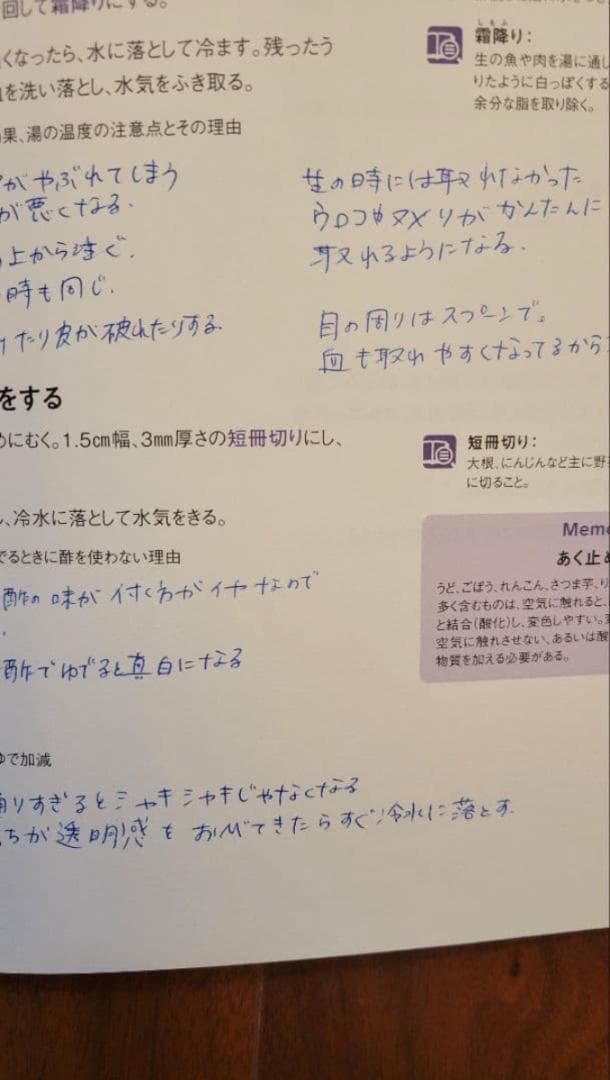 回して霜降りにする。
くなったら、水に落として冷ます。残ったう
を洗い落とし、水気をふき取る。
果、湯の温度の注意点とその理由
がやぶれてしまう
が悪くなる.
上から注ぐ.
時も同じ.
たり皮が破れたりする
生の時には取れなかった
ウロコやヌメリがかんたんに
取れるようになる.
目の周りはスプーンで。
血も取れやすくなってるから
しもふ
霜降り：
生の魚や肉を湯に通し
りたように白っぽくする
余分な脂を取り除く。
をする
めにむく。1.5cm幅、3mm厚さの短冊切りにし、
し、冷水に落として水気をきる。
でるときに酢を使わない理由
酢の味が付くのがイヤなので
酢でゆでると真白になる
短冊切り：
大根、にんじんなど主に野菜
に切ること。
Memo
あく止め
うど、ごぼう、れんこん、さつま芋、り
多く含むものは、空気に触れると、
と結合（酸化）し、変色しやすい。
空気に触れさせない、あるいは酸
物質を加える必要がある。
ゆで加減
すぎるとシャキシャキじゃなくなる
ちが透明感をおびてきたらすぐ冷水に落とす.